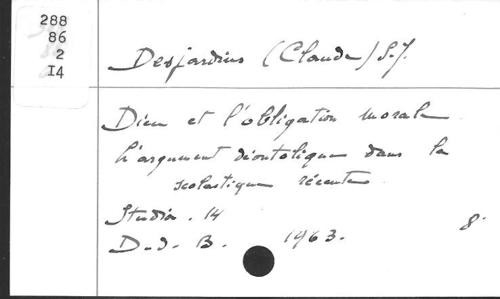 288
86
2
I4
Desjardins (Claude) S.J.
Dieu et l'obligation morale
L'argument déontologique dans la
scolastique récente
Studia. 14
D.d. B. 1963. 8°